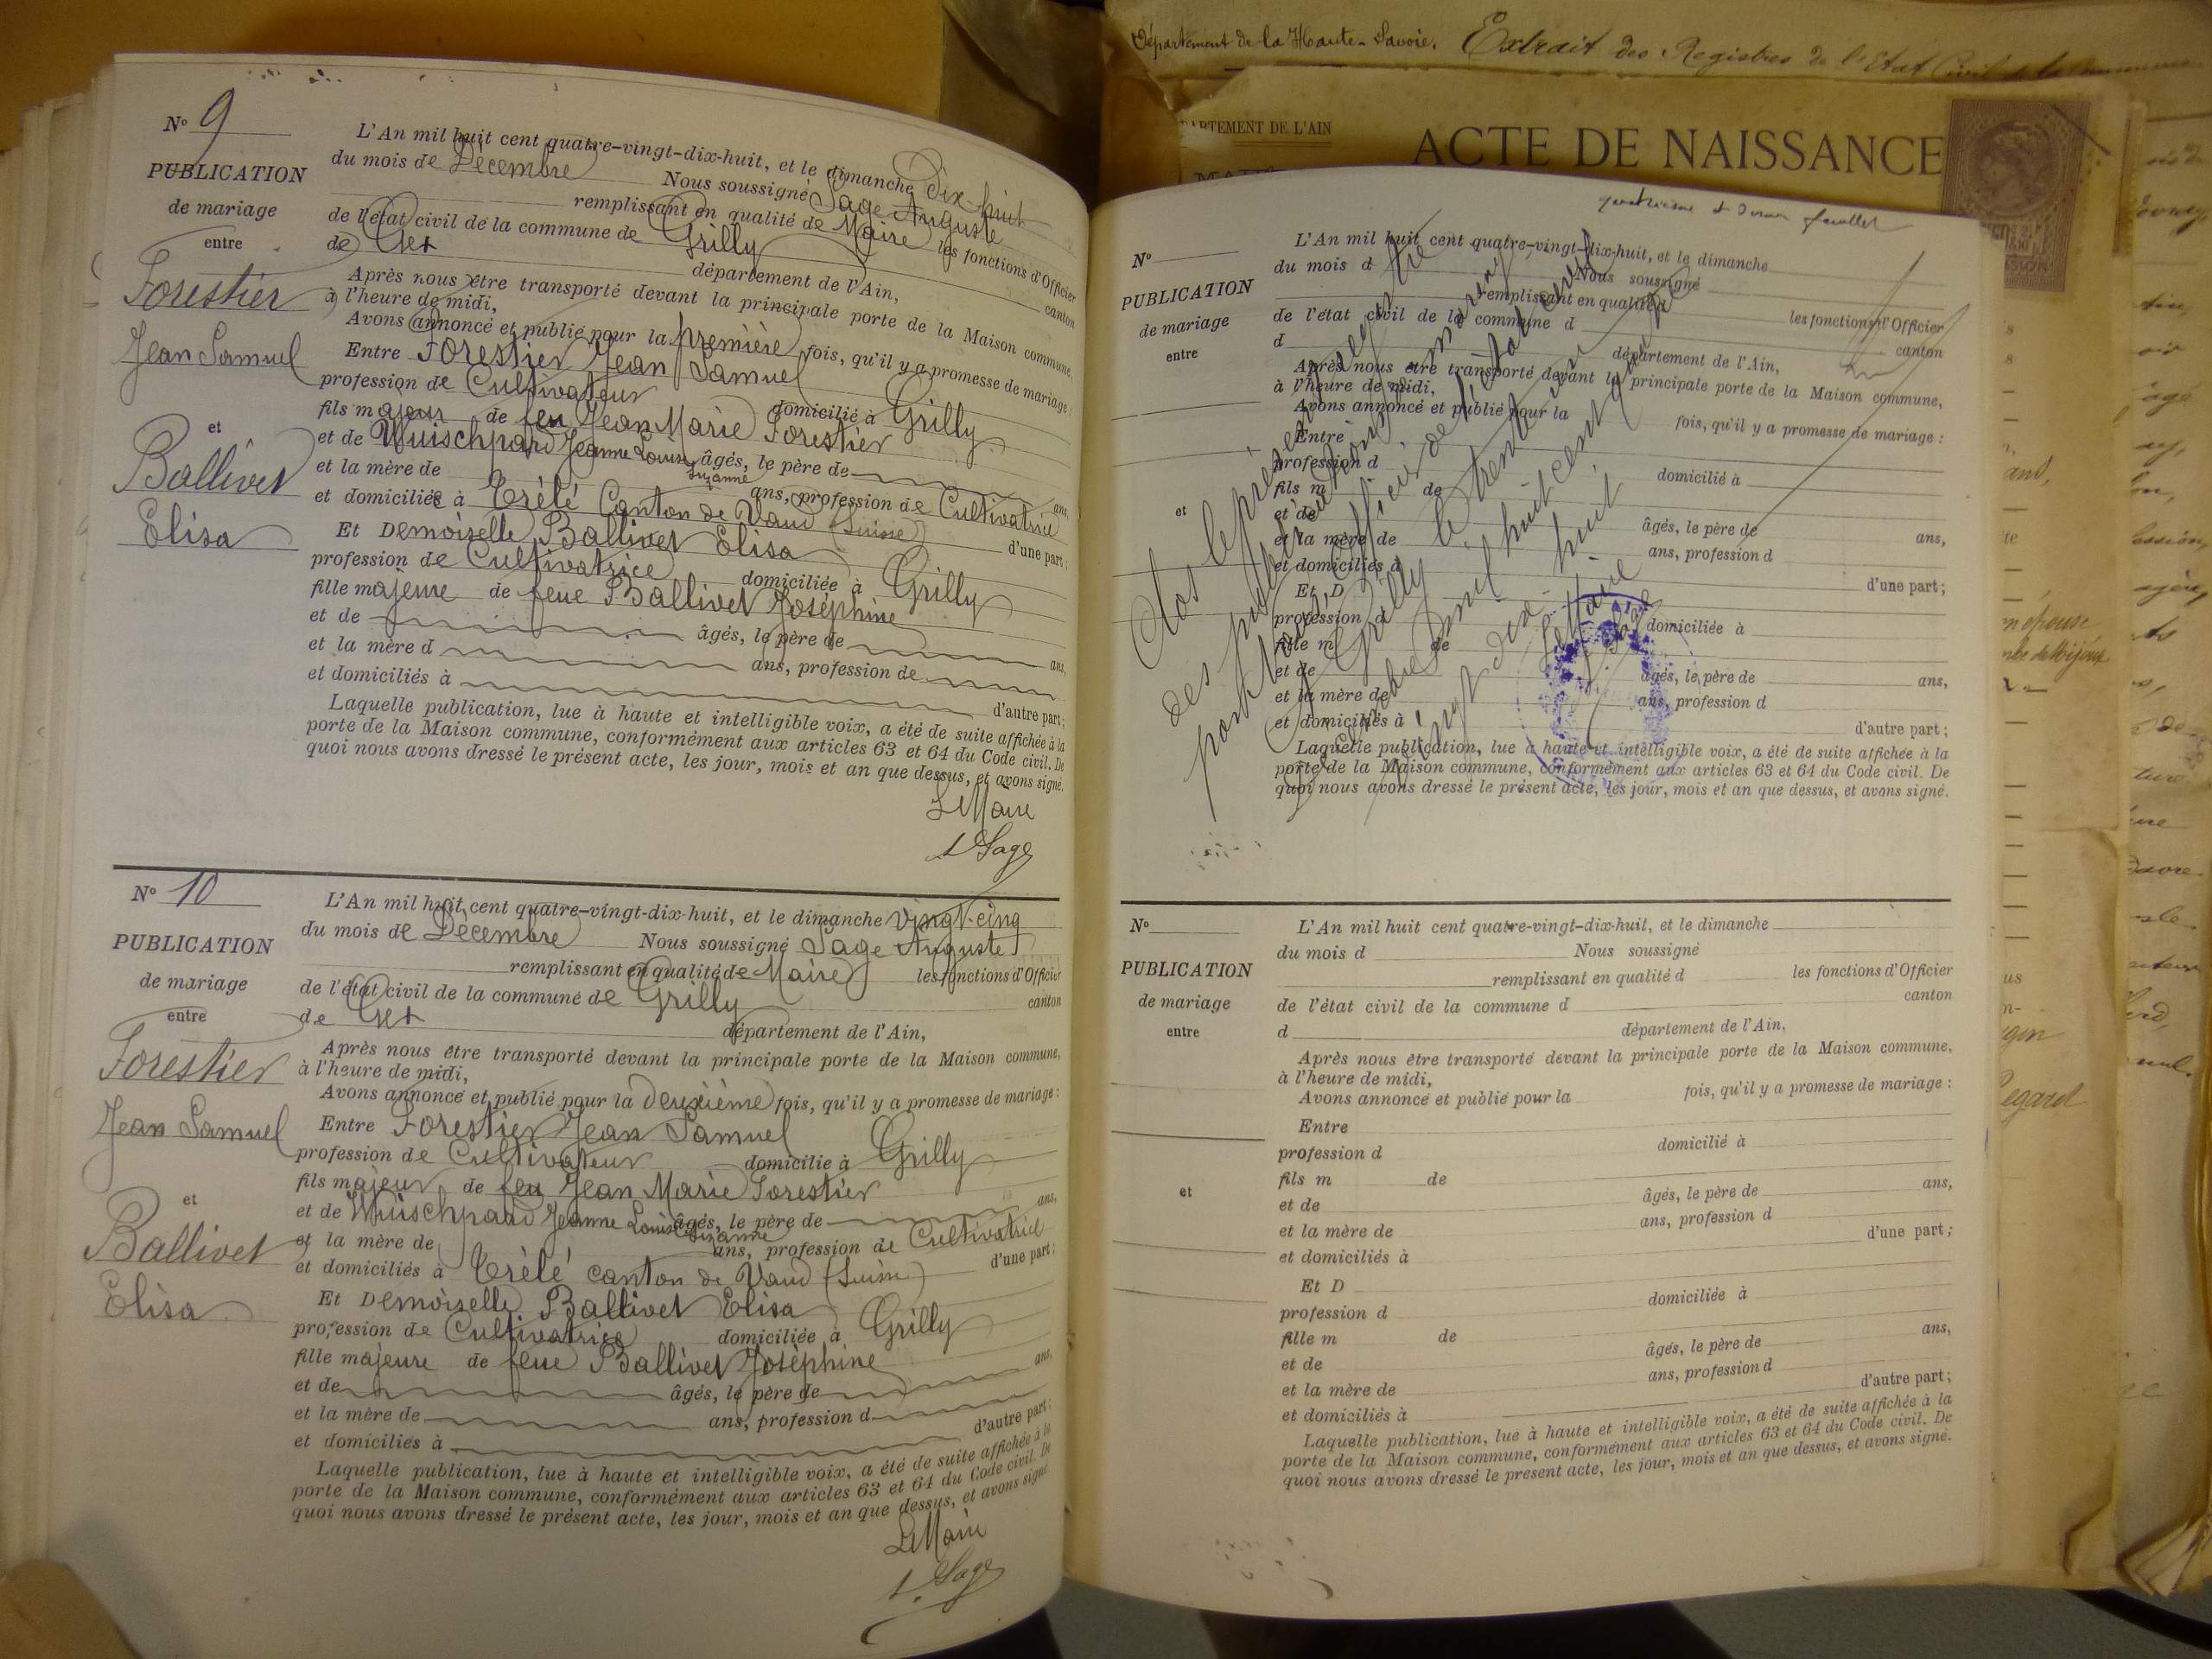 Département de la Haute-Savoie. Extrait des Registres de l'Etat Civil de la
DEPARTEMENT DE L'AIN
ACTE DE NAISSANCE
N° 9
PUBLICATION
de mariage
entre
Forestier
Jean Samuel
et
Ballivet
Elisa
L'An mil huit cent quatre-vingt-dix-huit, et le dimanche Dix-huit
du mois de Décembre Nous soussigné Sage Auguste
remplissant en qualité de Maire les fonctions d'Officier
de l'état civil de la commune de Grilly canton
de Gex département de l'Ain,
Après nous être transporté devant la principale porte de la Maison commune,
à l'heure de midi,
Avons annoncé et publié pour la première fois, qu'il y a promesse de mariage :
Entre Forestier Jean Samuel
profession de Cultivateur domicilié à Grilly
fils majeur de feu Jean Marie Forestier
et de Wuischpard Jeanne Louise Suzanne âgés, le père de ans,
et la mère de ans, profession de Cultivatrice
et domiciliés à Crêlé Canton de Vaud (Suisse) d'une part ;
Et Demoiselle Ballivet Elisa
profession de Cultivatrice domiciliée à Grilly
fille majeure de feue Ballivet Joséphine
et de âgés, le père de ans,
et la mère d ans, profession de
et domiciliés à d'autre part ;
Laquelle publication, lue à haute et intelligible voix, a été de suite affichée à la
porte de la Maison commune, conformément aux articles 63 et 64 du Code civil. De
quoi nous avons dressé le présent acte, les jour, mois et an que dessus, et avons signé.
Le Maire
A Sage
N° 10
PUBLICATION
de mariage
entre
Forestier
Jean Samuel
et
Ballivet
Elisa
L'An mil huit cent quatre-vingt-dix-huit, et le dimanche vingt-cinq
du mois de Décembre Nous soussigné Sage Auguste
remplissant en qualité de Maire les fonctions d'Officier
de l'état civil de la commune de Grilly canton
de Gex département de l'Ain,
Après nous être transporté devant la principale porte de la Maison commune,
à l'heure de midi,
Avons annoncé et publié pour la deuxième fois, qu'il y a promesse de mariage :
Entre Forestier Jean Samuel
profession de Cultivateur domicilié à Grilly
fils majeur de feu Jean Marie Forestier
et de Wuischpard Jeanne Louise Suzanne âgés, le père de ans,
et la mère de ans, profession de Cultivatrice
et domiciliés à Crêlé canton de Vaud (Suisse) d'une part ;
Et Demoiselle Ballivet Elisa
profession de Cultivatrice domiciliée à Grilly
fille majeure de feue Ballivet Joséphine
et de âgés, le père de ans,
et la mère de ans, profession d
et domiciliés à d'autre part ;
Laquelle publication, lue à haute et intelligible voix, a été de suite affichée à la
porte de la Maison commune, conformément aux articles 63 et 64 du Code civil. De
quoi nous avons dressé le présent acte, les jour, mois et an que dessus, et avons signé
Le Maire
A. Sage
quatrième et dernier feuillet
N°
PUBLICATION
de mariage
entre
et
L'An mil huit cent quatre-vingt-dix-huit, et le dimanche
du mois d Nous soussigné
remplissant en qualité d les fonctions d'Officier
de l'état civil de la commune d canton
d département de l'Ain,
Après nous être transporté devant la principale porte de la Maison commune,
à l'heure de midi,
Avons annoncé et publié pour la fois, qu'il y a promesse de mariage :
Entre
profession d domicilié à
fils m de
et de âgés, le père de ans,
et la mère de ans, profession d
et domiciliés à d'une part ;
Et D
profession d domiciliée à
fille m de
et de âgés, le père de ans,
et la mère de ans, profession d
et domiciliés à d'autre part ;
Laquelle publication, lue à haute et intelligible voix, a été de suite affichée à la
porte de la Maison commune, conformément aux articles 63 et 64 du Code civil. De
quoi nous avons dressé le présent acte, les jour, mois et an que dessus, et avons signé.
Clos le présent registre
des publications
par Nous, officier de l'état civil
de Grilly le trente un
Décembre mil huit cent quatre
vingt dix huit
Le Maire
A Sage
N°
PUBLICATION
de mariage
entre
et
L'An mil huit cent quatre-vingt-dix-huit, et le dimanche
du mois d Nous soussigné
remplissant en qualité d les fonctions d'Officier
de l'état civil de la commune d canton
d département de l'Ain,
Après nous être transporté devant la principale porte de la Maison commune,
à l'heure de midi,
Avons annoncé et publié pour la fois, qu'il y a promesse de mariage :
Entre
profession d domicilié à
fils m de
et de âgés, le père de ans,
et la mère de ans, profession d
et domiciliés à d'une part ;
Et D
profession d domiciliée à
fille m de
et de âgés, le père de ans,
et la mère de ans, profession d
et domiciliés à d'autre part ;
Laquelle publication, lue à haute et intelligible voix, a été de suite affichée à la
porte de la Maison commune, conformément aux articles 63 et 64 du Code civil. De
quoi nous avons dressé le présent acte, les jour, mois et an que dessus, et avons signé.